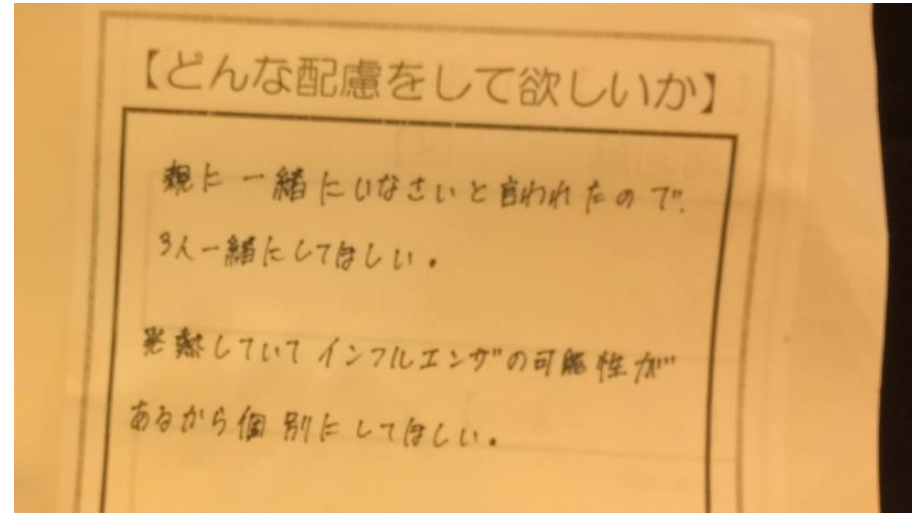 【どんな配慮をして欲しいか】
親に一緒にいなさいと言われたので、
3人一緒にしてほしい。
発熱していてインフルエンザの可能性が
あるから個別にしてほしい。